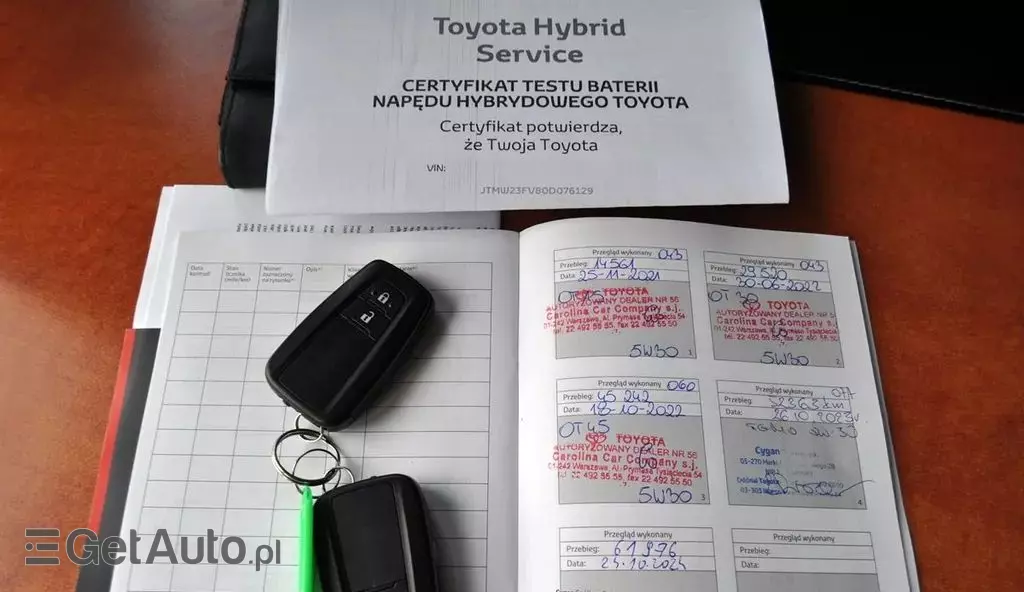 Toyota Hybrid
Service
CERTYFIKAT TESTU BATERII
NAPĘDU HYBRYDOWEGO TOYOTA
Certyfikat potwierdza,
że Twoja Toyota
VIN:
JTMW23FV80D076129
Data kontroli
Stan licznika (mile/km)
Opis
Przegląd wykonany 043
Przebieg: 14561
Data: 25-11-2021
TOYOTA
AUTORYZOWANY DEALER NR 56
Carolina Car Company s.j.
01-242 Warszawa, Al. Prymasa Tysiąclecia 54
tel. 22 492 55 55, fax 22 492 55 50
5W30
1
Przegląd wykonany 043
Przebieg: 29520
Data: 30-06-2022
OT 30
TOYOTA
AUTORYZOWANY DEALER NR 56
Carolina Car Company s.j.
01-242 Warszawa, Al. Prymasa Tysiąclecia
tel. 22 492 55 55, fax 22 492 55 50
5W30
2
Przegląd wykonany 060
Przebieg: 45 242
Data: 18-10-2022
OT 45
TOYOTA
AUTORYZOWANY DEALER NR 56
Carolina Car Company s.j.
01-242 Warszawa, Al. Prymasa Tysiąclecia 54
tel. 22 492 55 55, fax 22 492 55 50
5W30
3
Przegląd wykonany
Przebieg:
Data:
Cygan
05-270 Marki
4
Przegląd wykonany
Przebieg: 61976
Data:
Przegląd wykonany
Przebieg:
Data:
GetAuto.pl